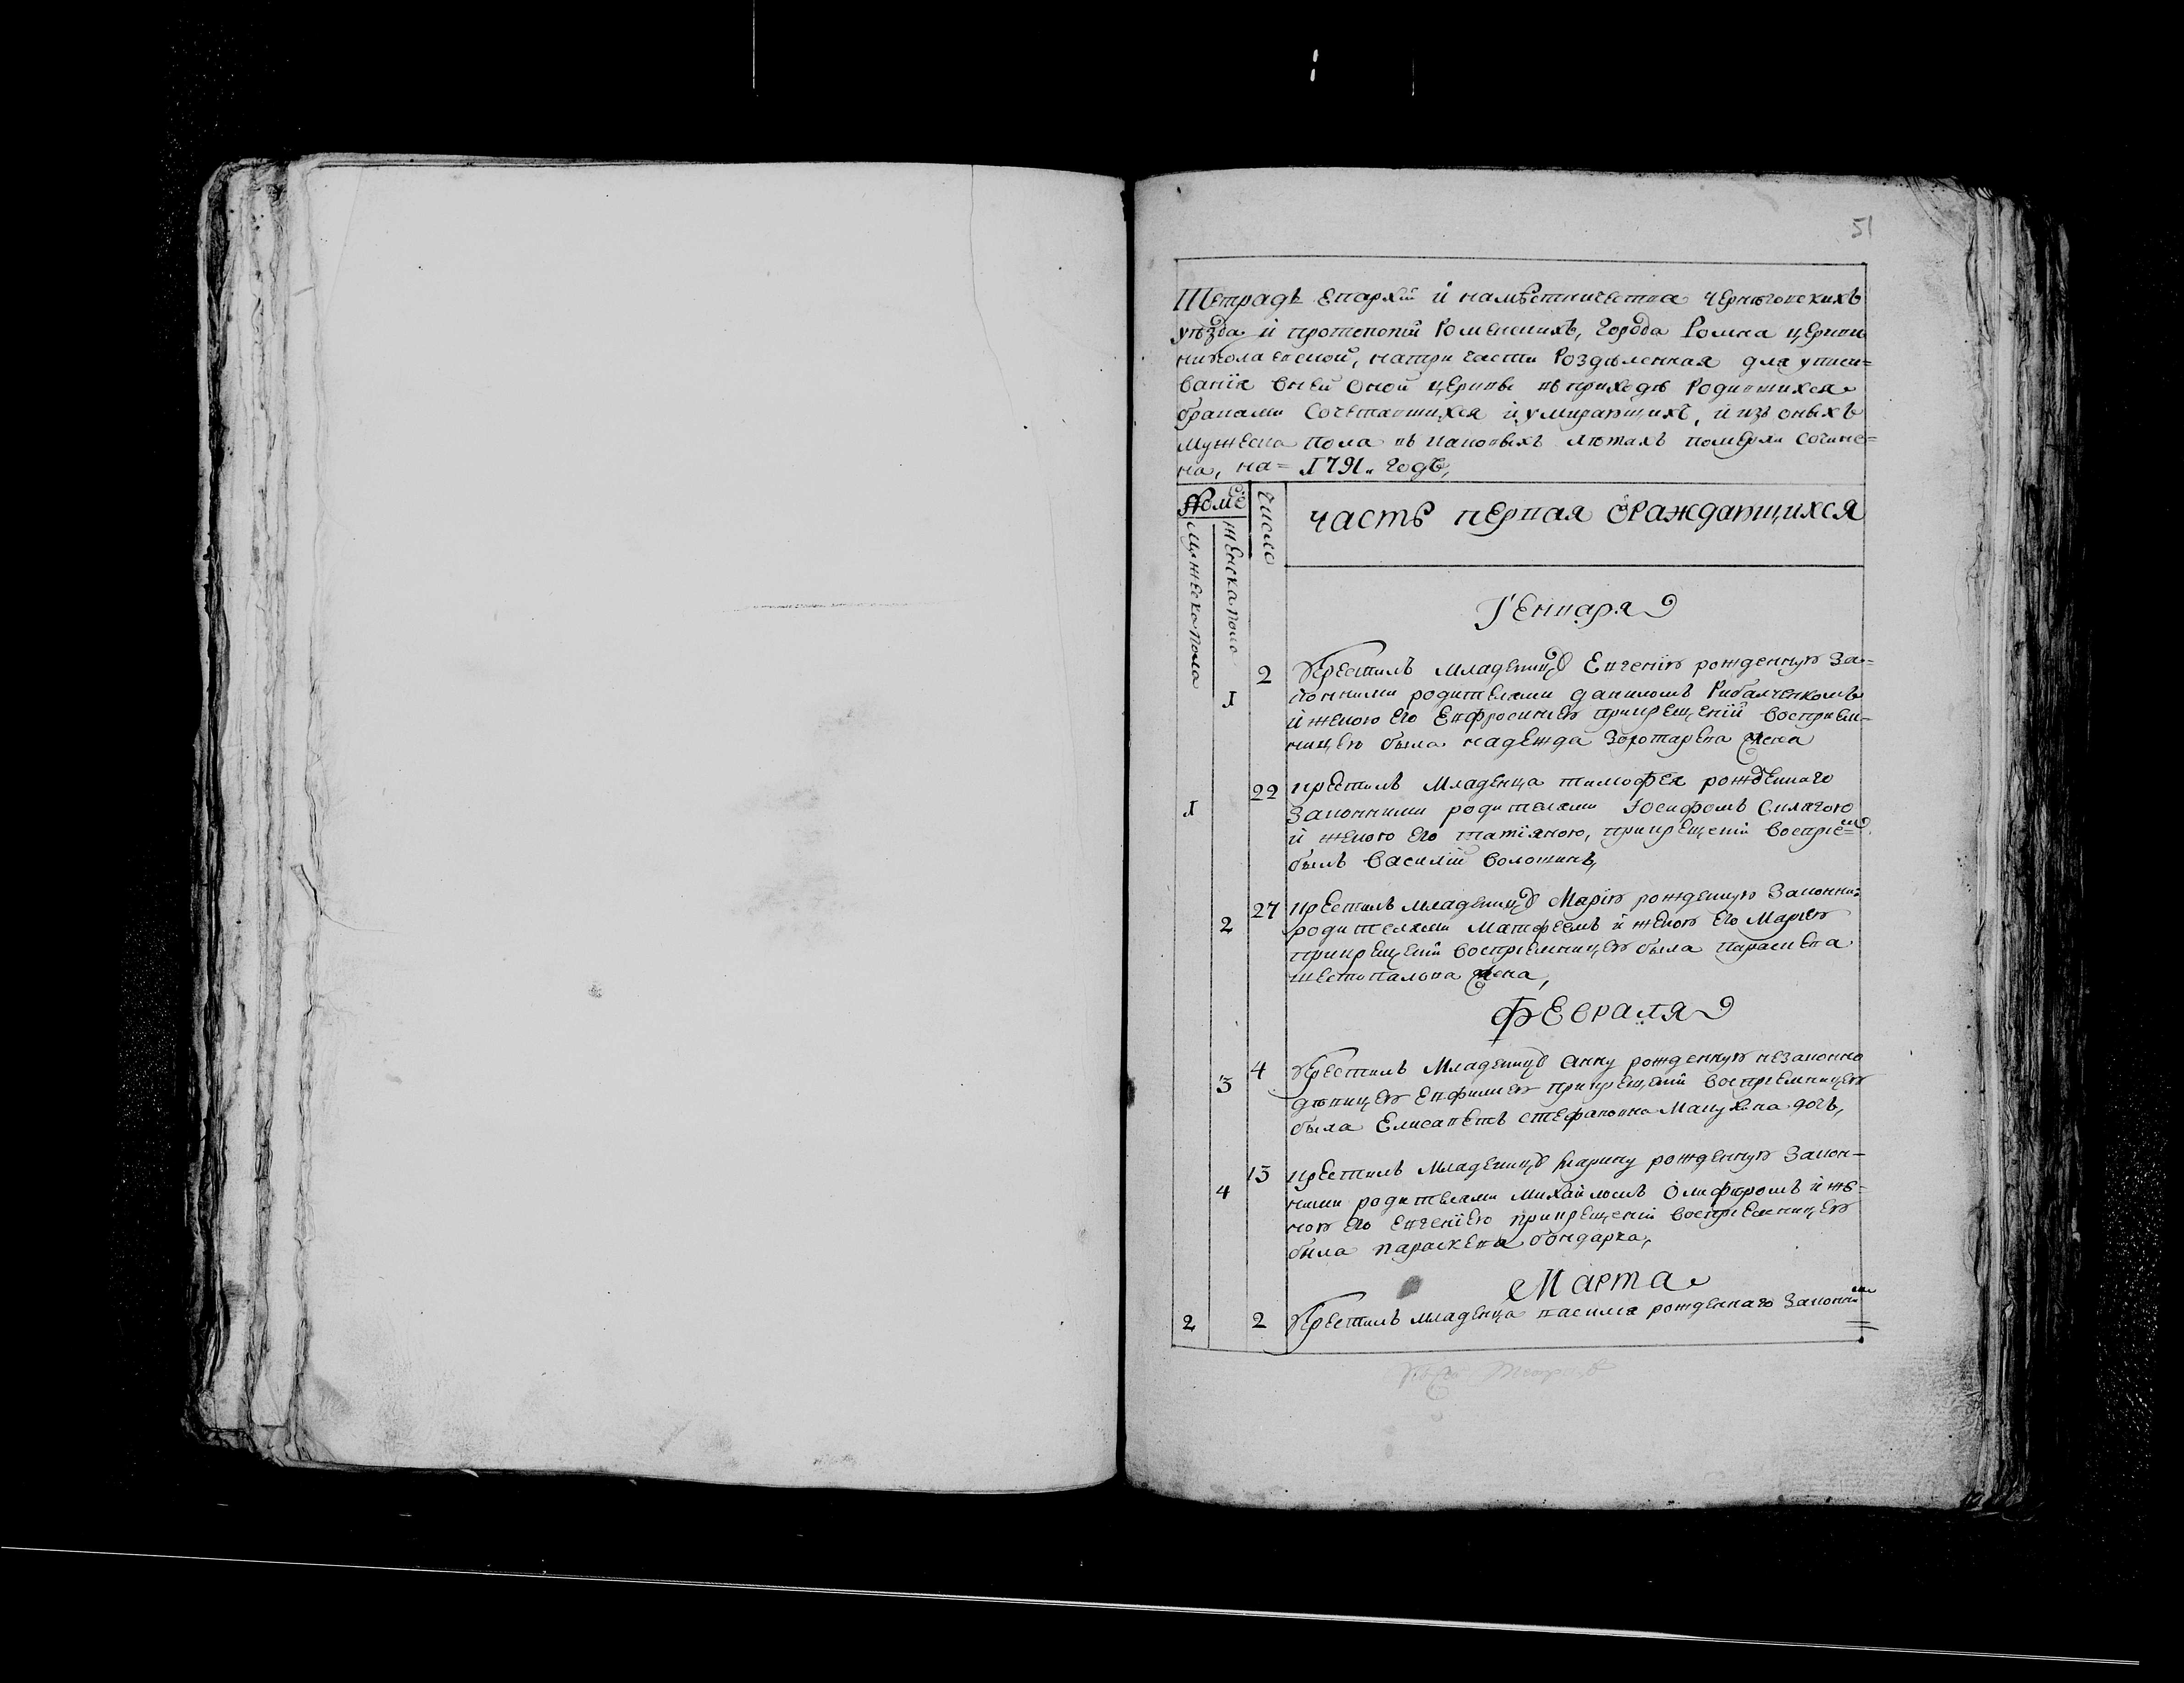 51
Тетрадь Епархіи и намѣстничества Черниговскихъ
уѣзда и протопопіи Роменскихъ, города Ромна церкви
николаевской, натри части Роздѣленная для уписи=
ванія вней оной церкве въ приходѣ Родившихся
браками Сочетавшихся и умирающихъ, и изъ оныхъ
мужеска пола въ каковыхъ лѣтахъ померли Сочине=
на, на= 1791. годъ,
Число
мужеска пола
женска пола
часть первая ораждающихся
Генваря
2 Крестилъ Младеницу Евгенію рожденную За=
1 конними родителями даниломъ Рибалченкомъ
и женою Его Евфросиниею прикрещеніи восприем=
ницею была надежда Золотарева жена
22 крестилъ Младенца тимофея рожденнаго
1 Законними родителями Іосифомъ Силягою
и женою Его татіяною, прикрещеніи воспріе=
былъ василій волошинъ,
27 крестилъ младеницу Марію рожденную Законни:
2 родителями Матфеемъ и женою Его Мариею
прикрещеніи воспріемницею была параскева
шестопалова жена,
Февраля
4 Крестилъ Младеницу анну рожденную незаконно
3 дѣвицею Евфимиею прикрещеніи воспріемницею
была Елисаветъ стефановна Манухина дочь,
13 крестилъ Младеницу марину рожденную Закон=
4 ними родителями михайломъ Олифиромъ и же=
ною Его Евгеніею прикрещеніи воспріемницею
была параскева бондарка,
Марта
2 2 Крестилъ младенца василія рожденнаго Законни